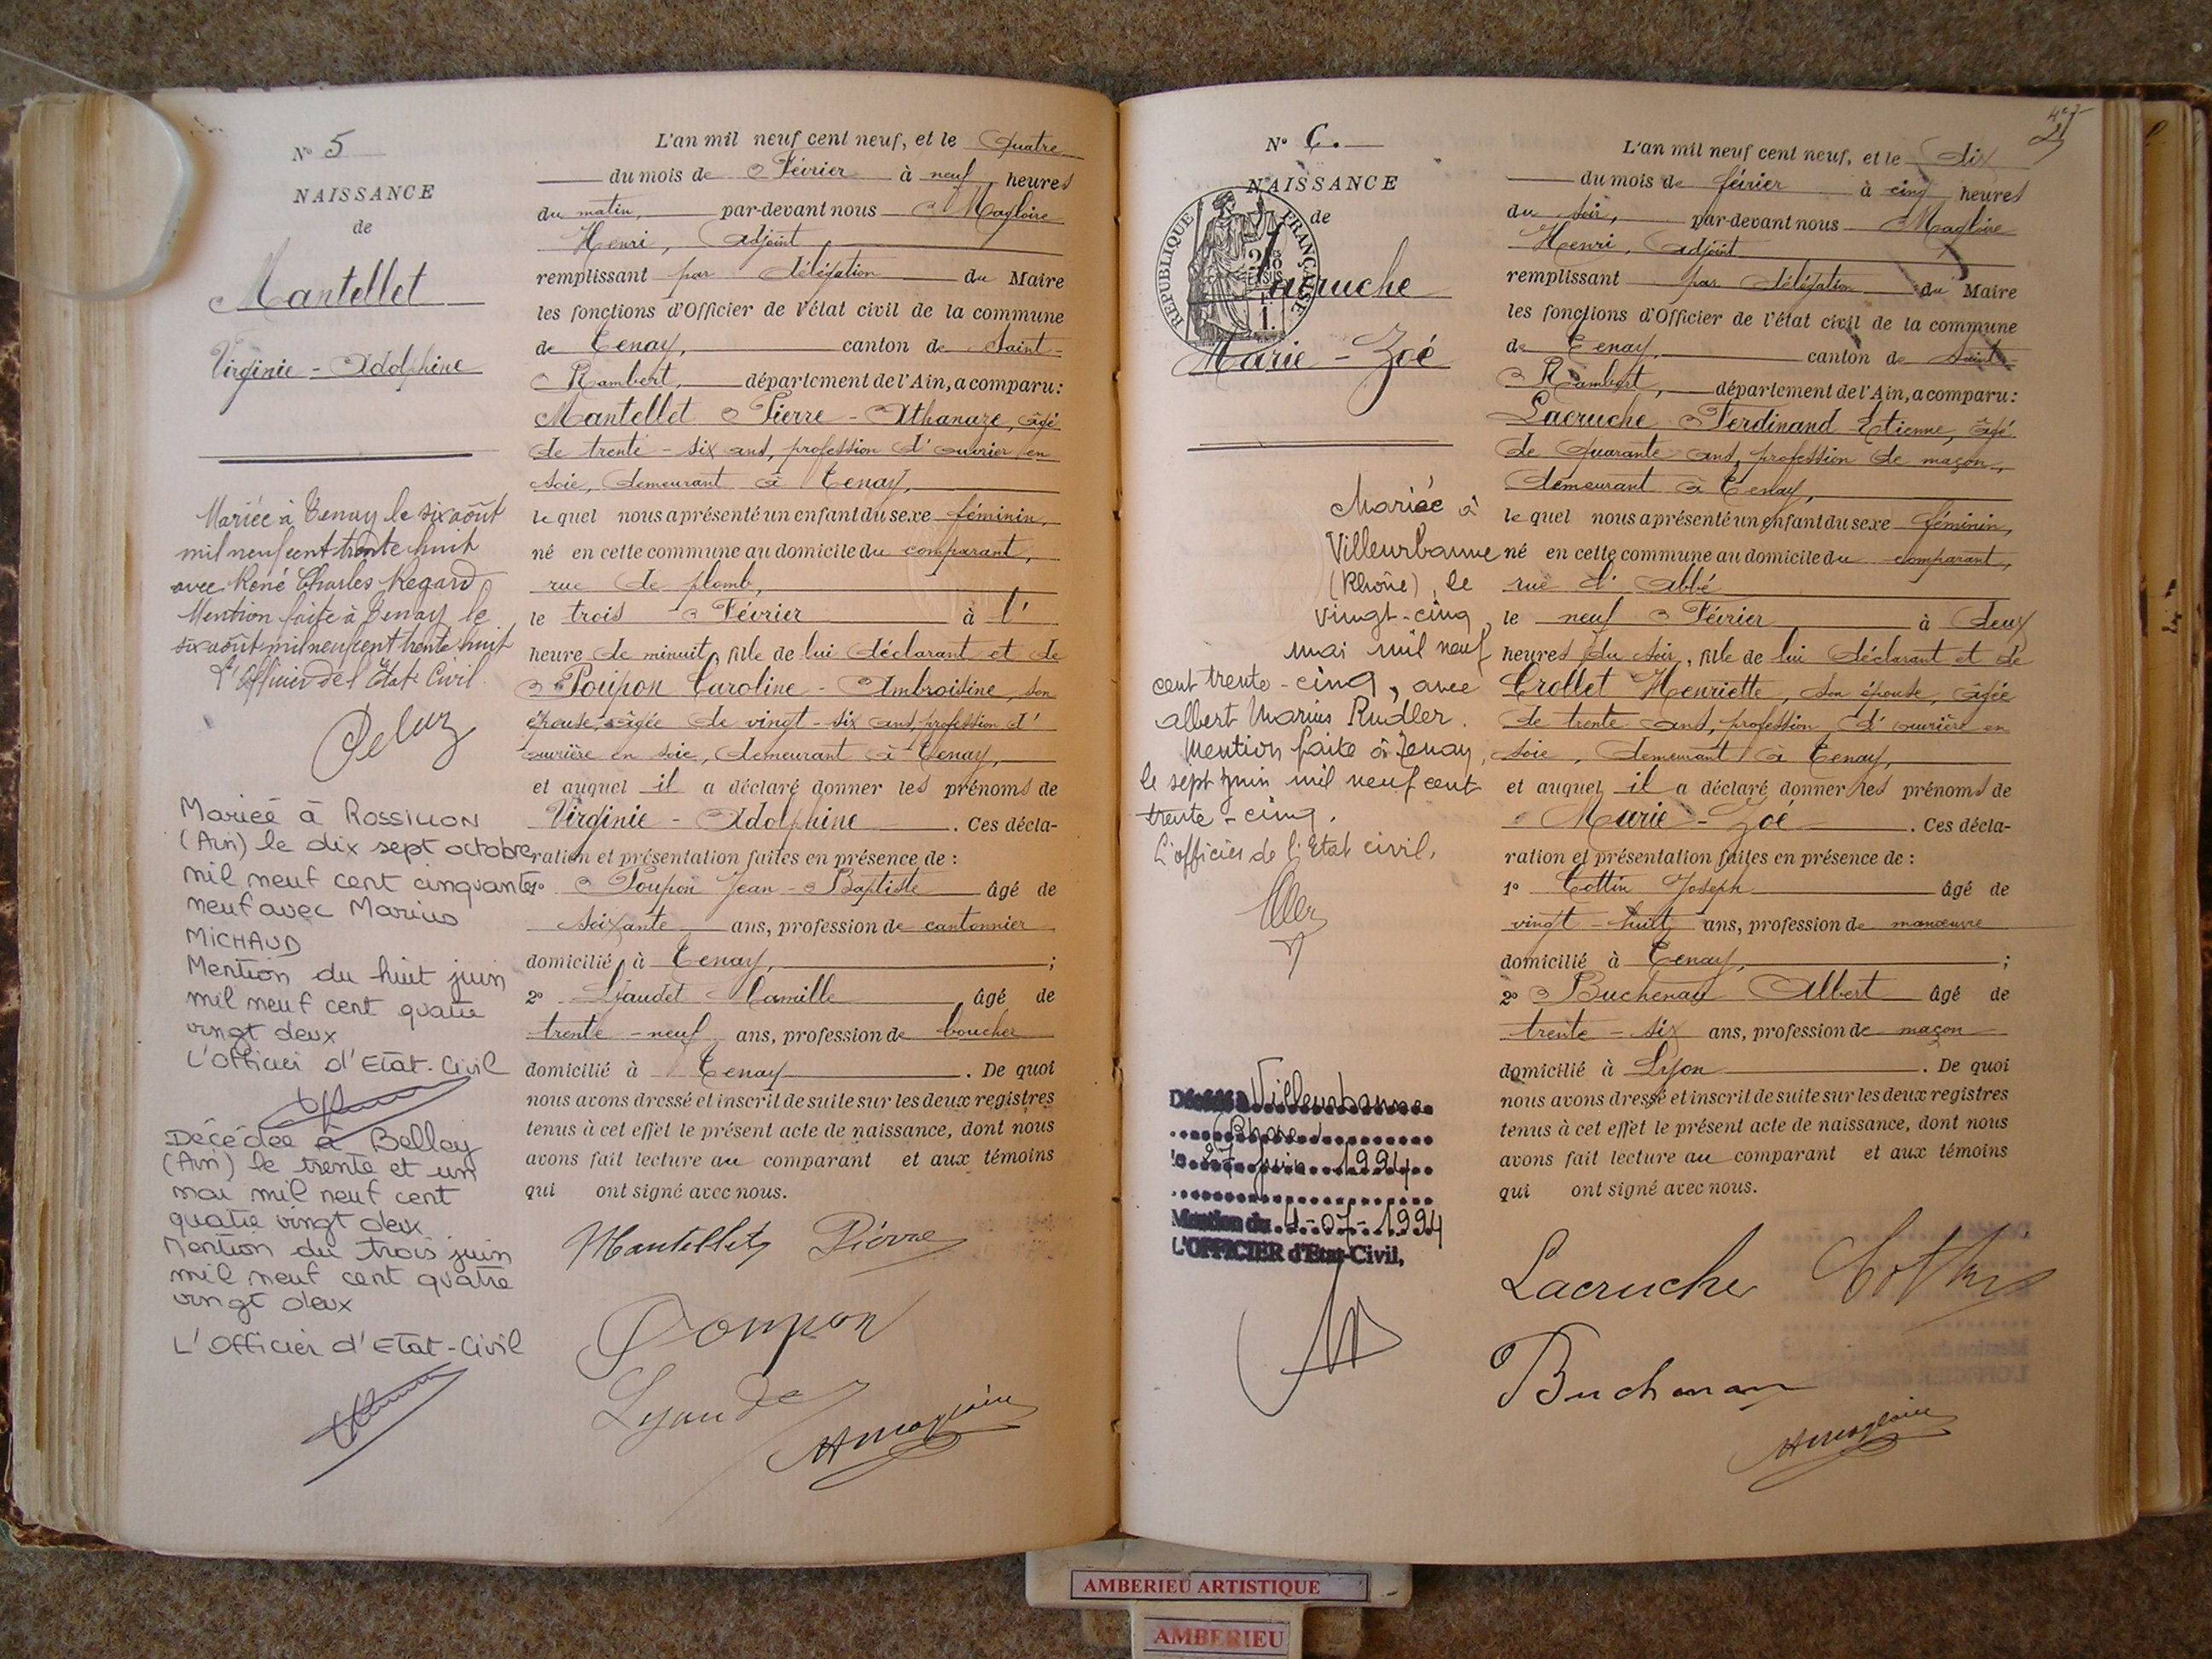 N° 5
NAISSANCE
de
Mantellet
Virginie - Adolphine
Mariée à Tenay le six août
mil neuf cent trente huit
avec René Charles Regard
Mention faite à Tenay le
six août mil neuf cent trente huit
L'Officier de l'Etat Civil
Mariée à ROSSILLON
(Ain) le dix sept octobre
mil neuf cent cinquante
neuf avec Marius
MICHAUD
Mention du huit juin
mil neuf cent quatre
vingt deux
L'Officier d'Etat-Civil
Décédée à Belley
(Ain) le trente et un
mai mil neuf cent
quatre vingt deux
Mention du trois juin
mil neuf cent quatre
vingt deux
L'Officier d'Etat-Civil
L'an mil neuf cent neuf, et le Quatre
du mois de Février à neuf heures
du matin, par-devant nous Magloire
Henri, Adjoint
remplissant par délégation du Maire
les fonctions d'Officier de l'état civil de la commune
de Tenay, canton de Saint-
Rambert, département de l'Ain, a comparu:
Mantellet Pierre - Athanaze, âgé
de trente - six ans, profession d'ouvrier en
soie, demeurant à Tenay,
lequel nous a présenté un enfant du sexe féminin,
né en cette commune au domicile du comparant,
rue de plomb,
le trois Février à l'
heure de minuit, fille de lui déclarant et de
Poupon Caroline - Ambroisine, son
épouse, âgée de vingt - six ans, profession d'
ouvrière en soie, demeurant à Tenay,
et auquel il a déclaré donner les prénoms de
Virginie - Adolphine. Ces décla-
ration et présentation faites en présence de :
1° Poupon Jean - Baptiste âgé de
soixante ans, profession de cantonnier
domicilié à Tenay, ;
2° Lyaudet Camille âgé de
trente - neuf ans, profession de boucher
domicilié à Tenay. De quoi
nous avons dressé et inscrit de suite sur les deux registres
tenus à cet effet le présent acte de naissance, dont nous
avons fait lecture au comparant et aux témoins
qui ont signé avec nous.
Mantellet Pierre
Poupon
Lyaudet
HMagloire
N° 6.
NAISSANCE
de
RÉPUBLIQUE FRANÇAISE
Lacruche
Marie - Zoé
Mariée à
Villeurbanne
(Rhône), le
vingt-cinq
mai mil neuf
cent trente-cinq, avec
Albert Marius Rudler.
Mention faite à Tenay,
le sept juin mil neuf cent
trente-cinq.
L'officier de l'Etat civil,
Décédée à Villeurbanne
(Rhône)
le 27 juin 1994
Mention du 4-07-1994
L'OFFICIER d'Etat-Civil,
L'an mil neuf cent neuf, et le dix
du mois de février à cinq heures
du soir, par-devant nous Magloire
Henri, Adjoint
remplissant par délégation du Maire
les fonctions d'Officier de l'état civil de la commune
de Tenay, canton de Saint-
Rambert, département de l'Ain, a comparu:
Lacruche Ferdinand Etienne, âgé
de quarante ans, profession de maçon,
demeurant à Tenay,
lequel nous a présenté un enfant du sexe féminin,
né en cette commune au domicile du comparant,
rue d'Abbé
le neuf Février à deux
heures du soir, fille de lui déclarant et de
Crollet Henriette, son épouse, âgée
de trente ans, profession d'ouvrière en
soie, demeurant à Tenay,
et auquel il a déclaré donner les prénoms de
Marie - Zoé. Ces décla-
ration et présentation faites en présence de :
1° Cottin Joseph âgé de
vingt - huit ans, profession de manœuvre
domicilié à Tenay, ;
2° Buchenau Albert âgé de
trente - six ans, profession de maçon
domicilié à Lyon. De quoi
nous avons dressé et inscrit de suite sur les deux registres
tenus à cet effet le présent acte de naissance, dont nous
avons fait lecture au comparant et aux témoins
qui ont signé avec nous.
Lacruche Cottin
Buchenau
HMagloire
AMBERIEU ARTISTIQUE
AMBERIEU